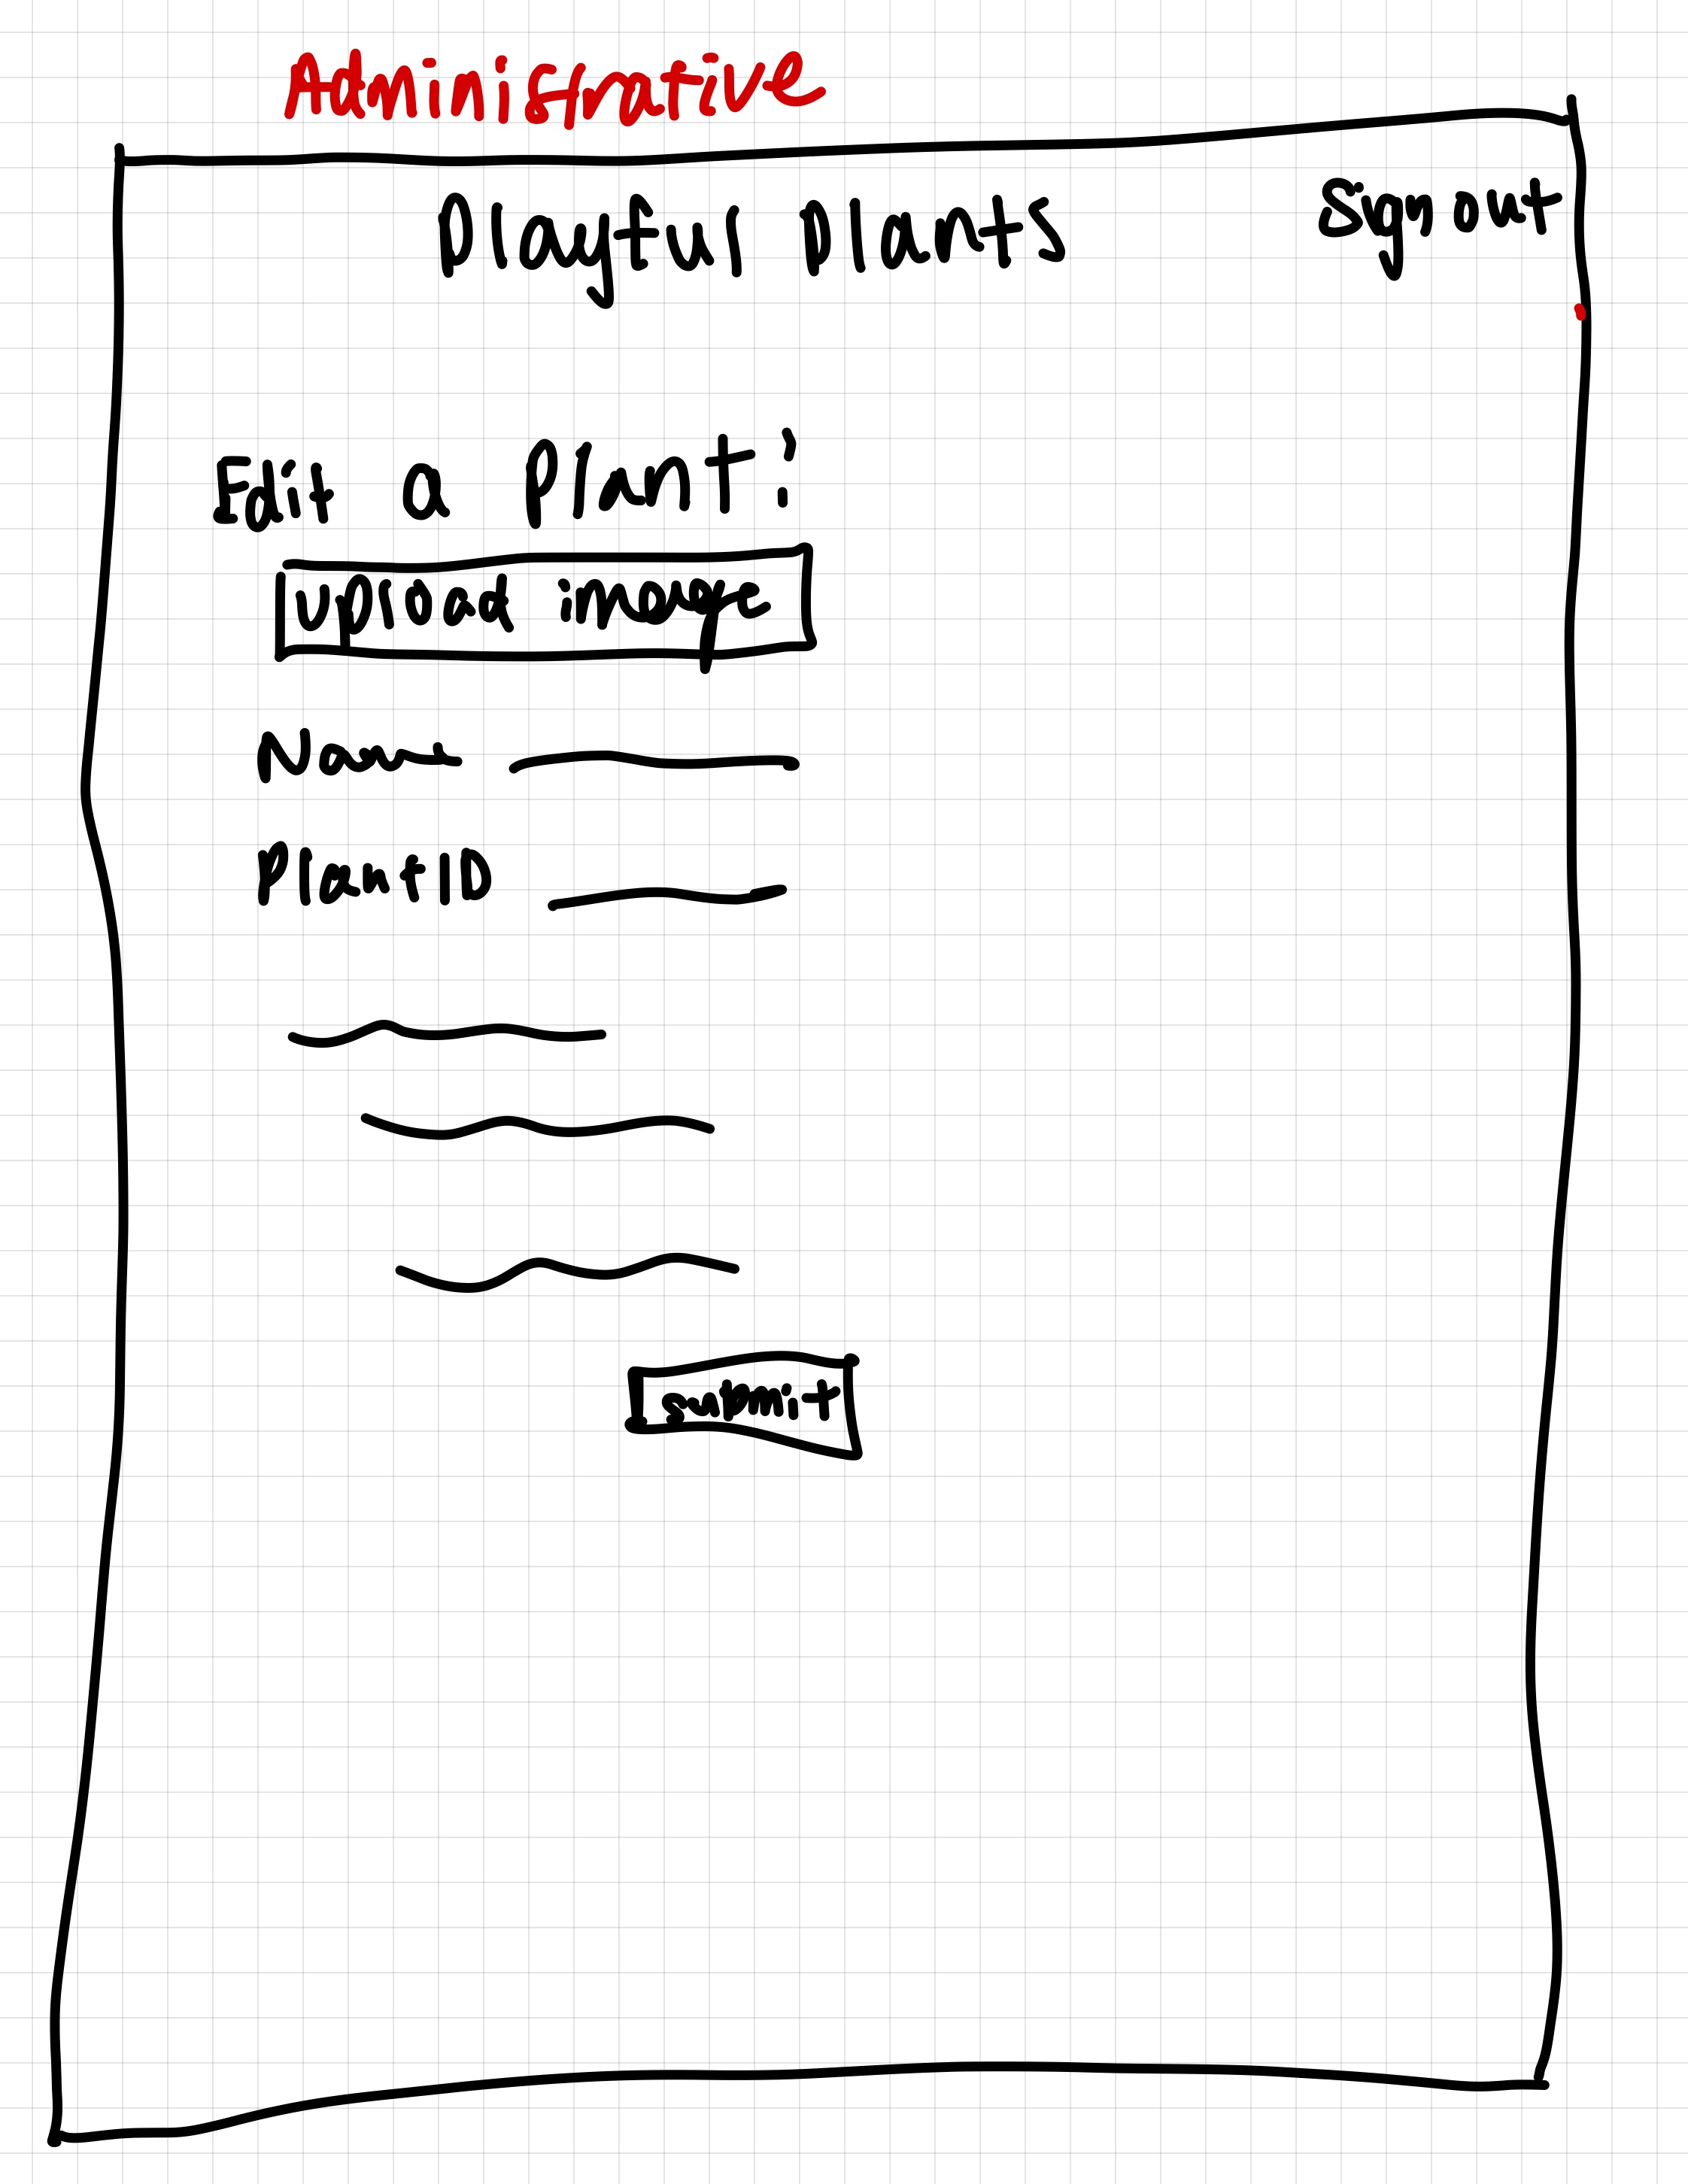 Adminisrative
Playful Plants
Sign out
Edit a Plant:
upload image
Name
PlantID
submit